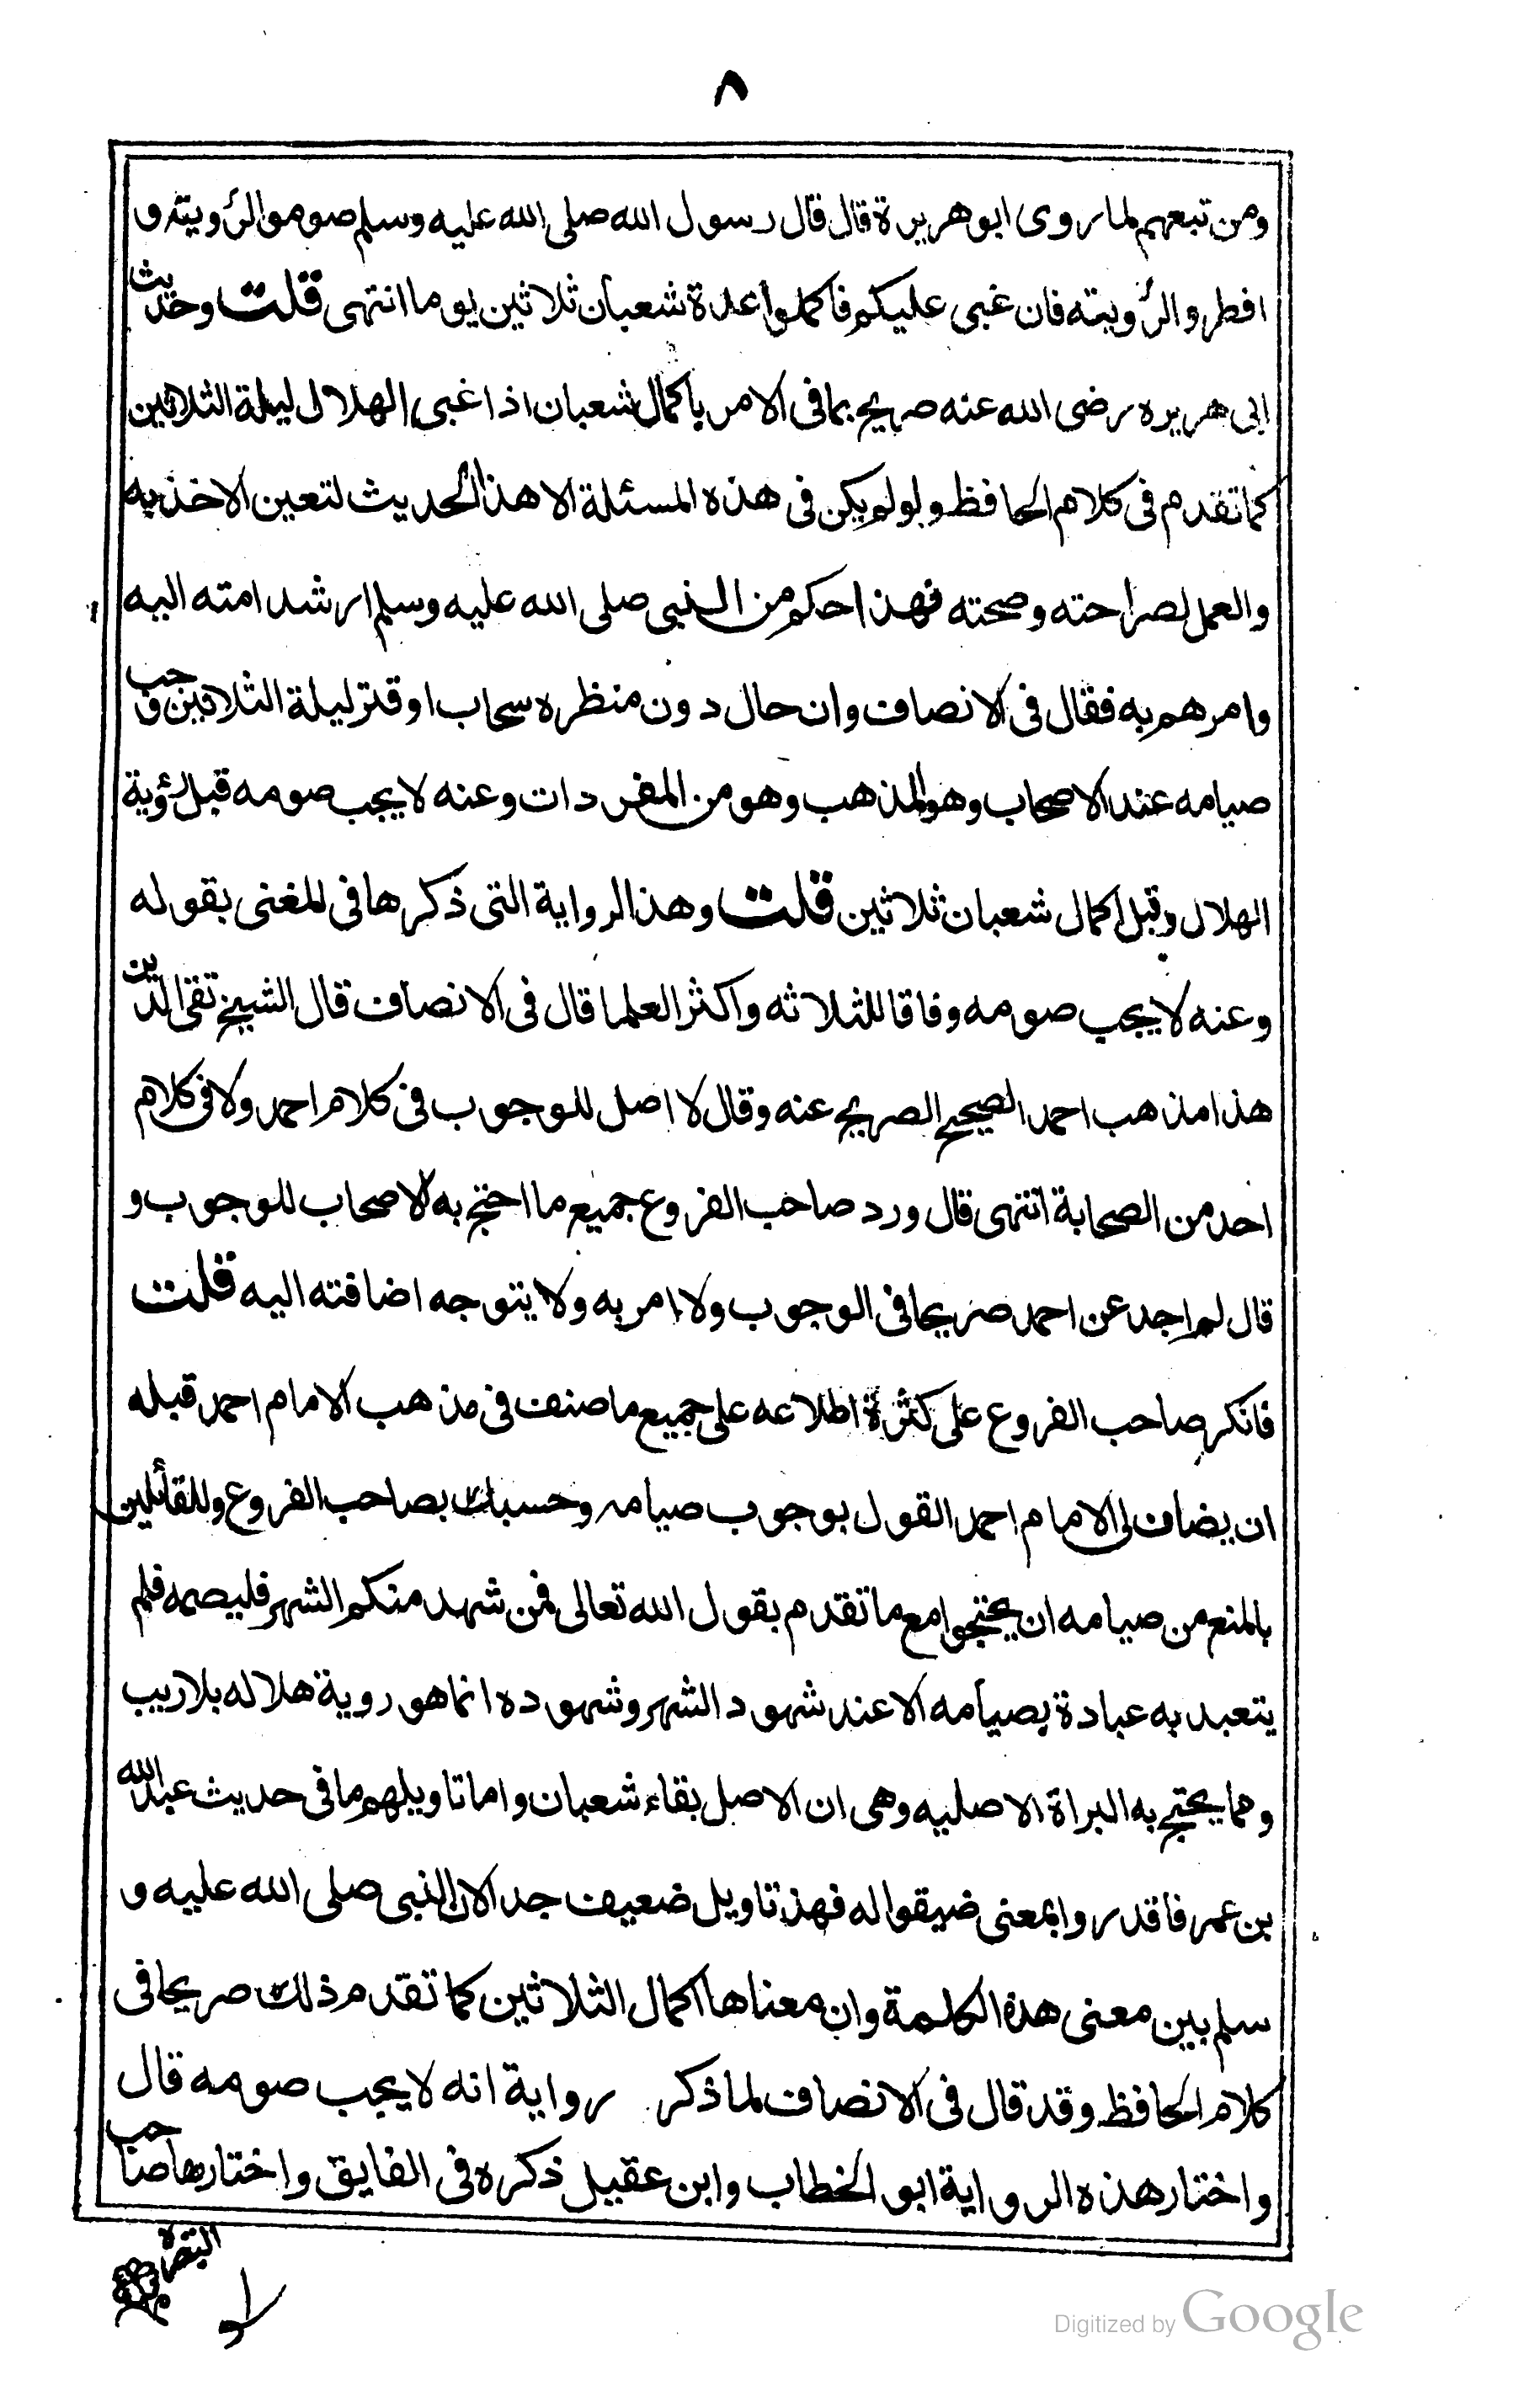 ٨
ومن تبعهم لما روى ابو هريرة قال قال رسول الله صلى الله عليه وسلم صوموا لرؤيته و
افطروا لرؤيته فان غبى عليكم فاكملوا عدة شعبان ثلاثين يوما انتهى قلت وحديث
ابى هريره رضى الله عنه صريح بما فى الامر باكمال شعبان اذا غبى الهلال ليلة الثلاثين
كما تقدم فى كلام الحافظ ولو لم يكن فى هذه المسئلة الا هذا الحديث لتعين الاخذ به
والعمل لصراحته وصحته فهذا حكم من النبى صلى الله عليه وسلم ارشد امته اليه
وامرهم به فقال فى الانصاف وان حال دون منظره سحاب او قتر ليلة الثلاثين وجب
صيامه عند الاصحاب وهو المذهب وهو من المفردات وعنه لا يجب صومه قبل رؤية
الهلال وقبل اكمال شعبان ثلاثين قلت وهذا الرواية التى ذكرها فى المغنى بقوله
وعنه لا يجب صومه وفاقا للثلاثه واكثر العلما قال فى الانصاف قال الشيخ تقى الدين
هذا مذهب احمد الصحيح الصريح عنه وقال لا اصل للوجوب فى كلام احمد ولا فى كلام
احد من الصحابة انتهى قال ورد صاحب الفروع جميع ما احتج به الاصحاب للوجوب و
قال لم اجد عن احمد صريحا فى الوجوب ولا امر به ولا يتوجه اضافته اليه قلت
فانكر صاحب الفروع على كثرة اطلاعه على جميع ما صنف فى مذهب الامام احمد قبله
ان يضاف الى الامام احمد القول بوجوب صيامه وحسبك بصاحب الفروع وللقائلين
بالمنع من صيامه ان يحتجوا مع ما تقدم بقول الله تعالى فمن شهد منكم الشهر فليصمه فلم
يتعبد به عبادة بصيامه الا عند شهود الشهر وشهوده انما هو روية هلاله بلا ريب
ومما يحتج به البراة الاصليه وهى ان الاصل بقاء شعبان واما تاويلهم ما فى حديث عبد الله
بن عمر فاقدروا بمعنى ضيقوا له فهذ تاويل ضعيف جدا لان النبى صلى الله عليه و
سلم بين معنى هذه الكلمة وان معناها اكمال الثلاثين كما تقدم ذلك صريحا فى
كلام الحافظ وقد قال فى الانصاف لما ذكر رواية انه لا يجب صومه قال
واختار هذه الرواية ابو الخطاب وابن عقيل ذكره فى الفايق واختارها صاحب
التبصرة
Digitized by Google